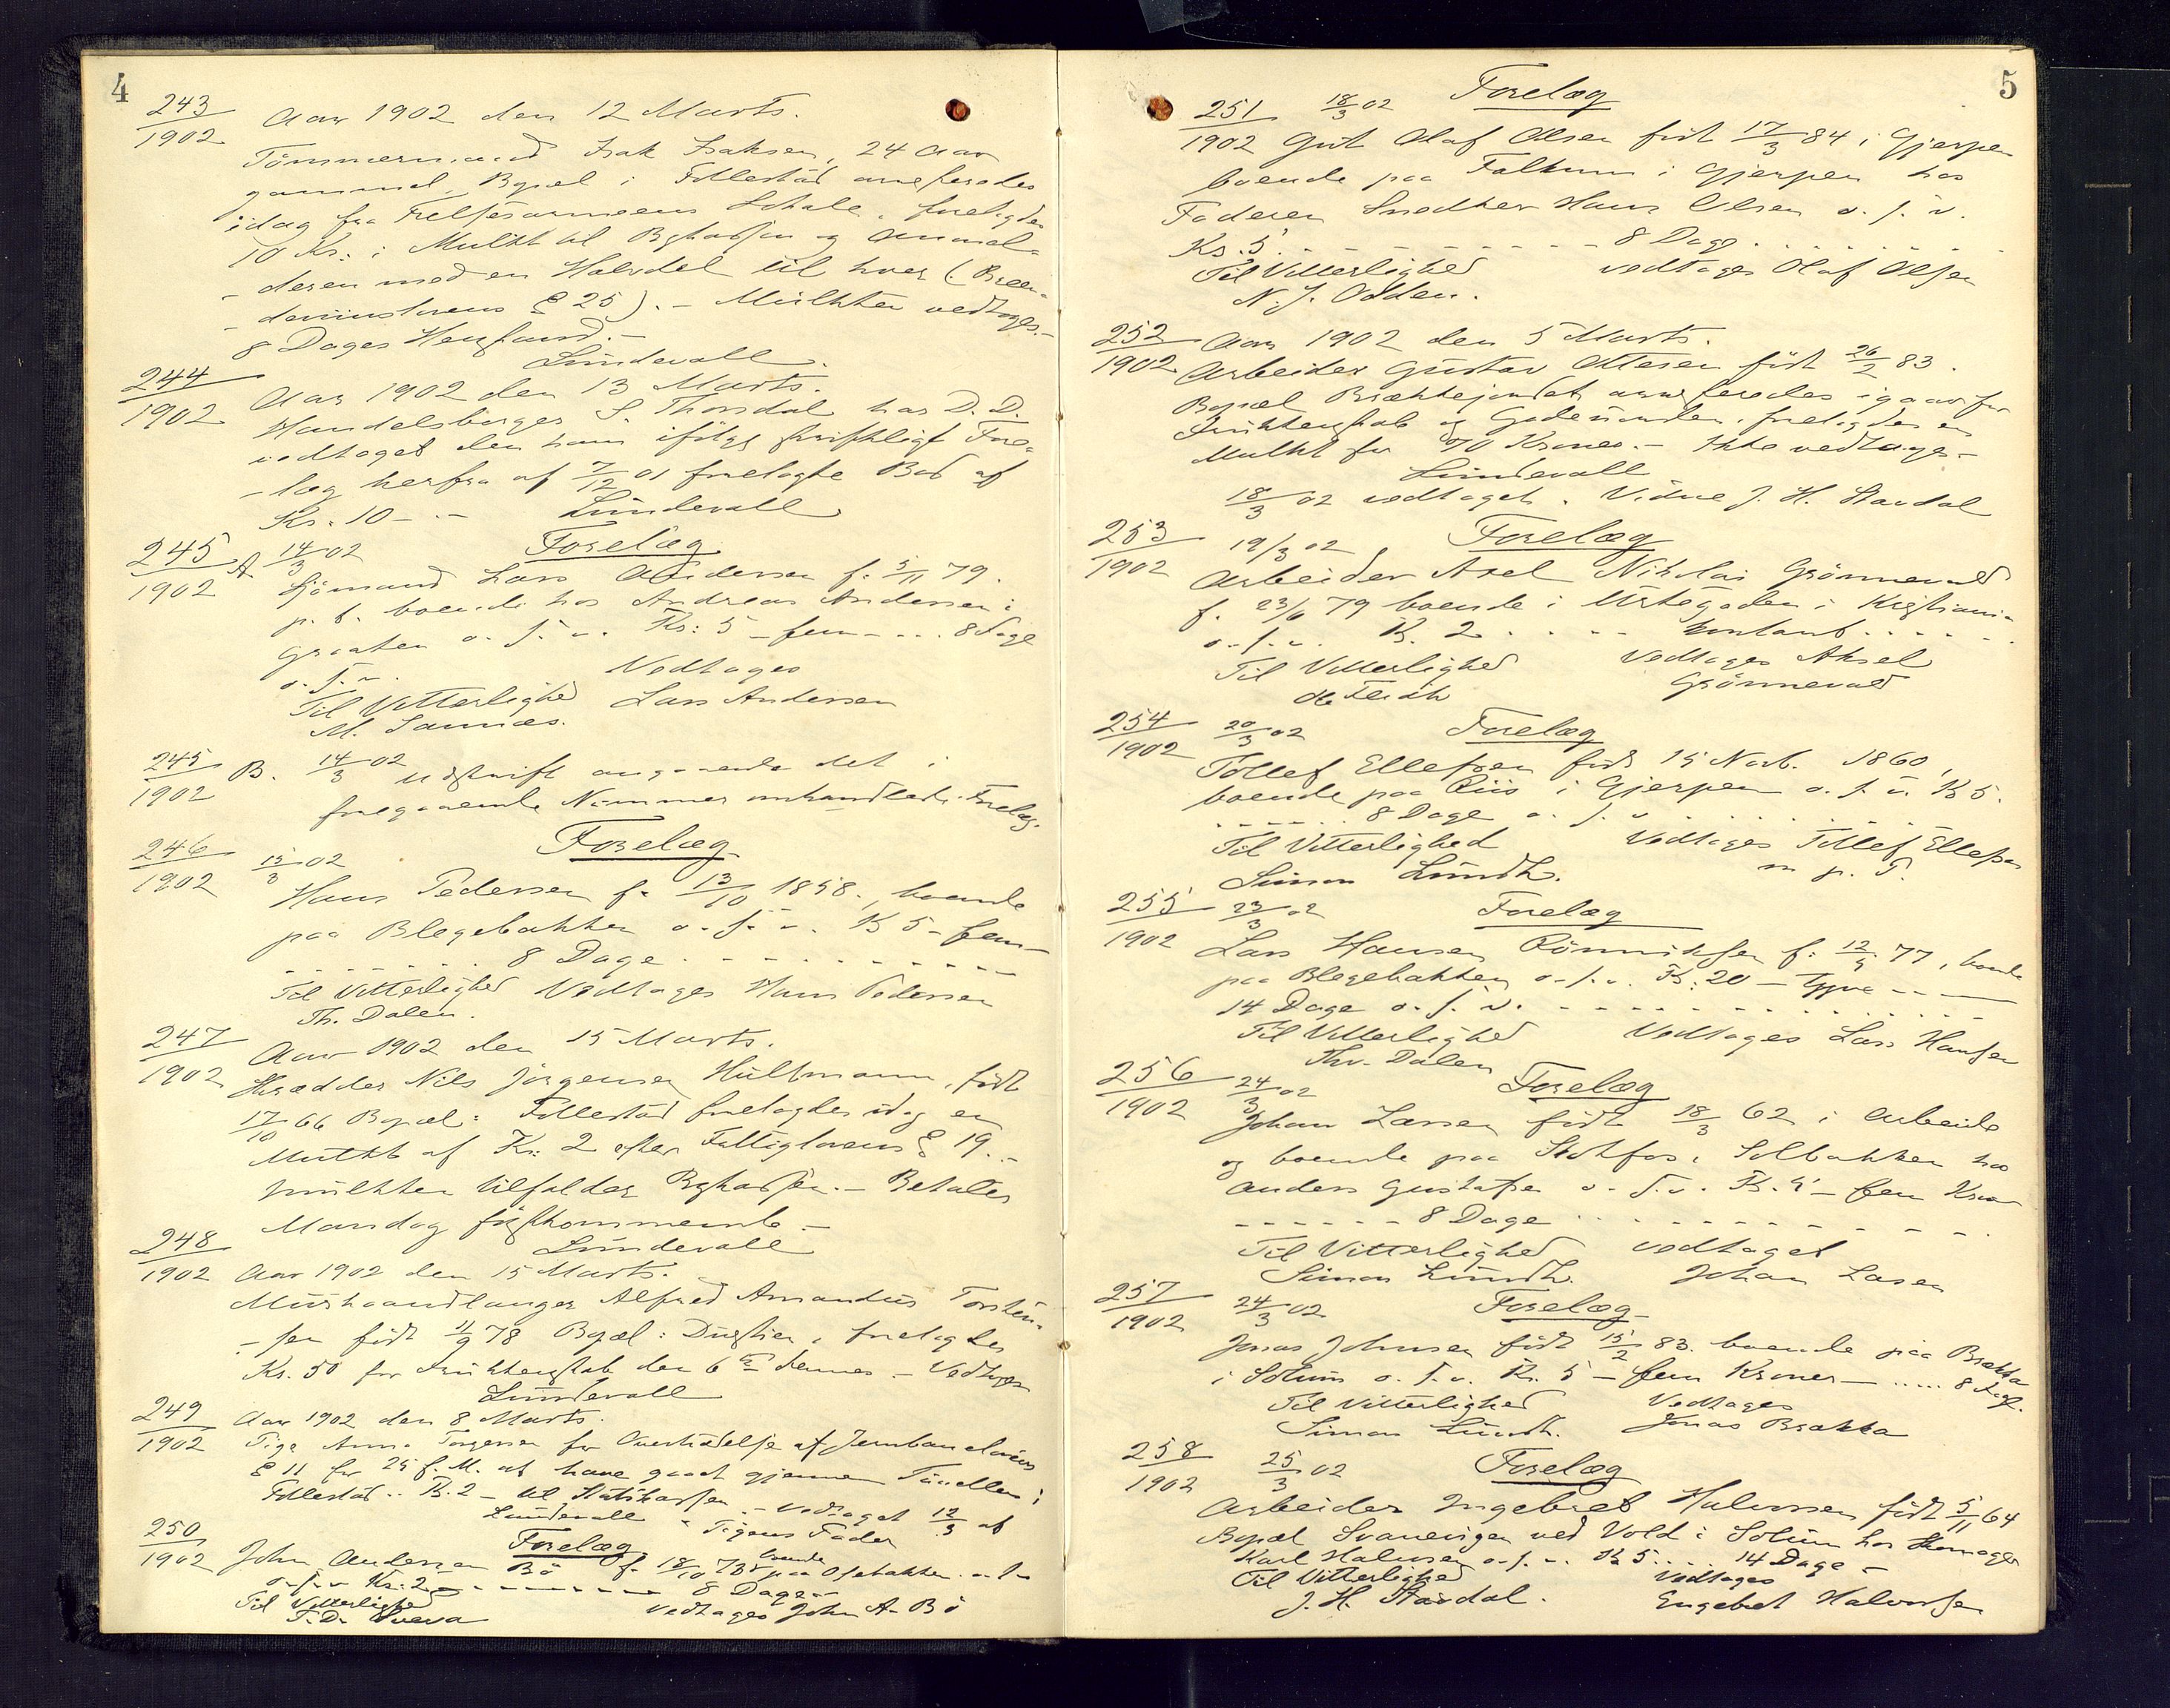 4
243
1902
Aar 1902 den 12 Marts.
Tömmermand Isak Isaksen, 24 Aar
gammel, Bopæl i Follestad arresteredes
idag fra Frelsesarmeens Lokale, forelagdes
10 Kr. i Mulkt til Bykassen og Anmel-
deren med en Halvdel til hver (Bræn-
- devinslovens § 25). - Mulkten vedtoges.-
8 Dages Henstand.-
Lundevall.
244
1902
Aar 1902 den 13 Marts.
Handelsborger S. Thorsdal har D. D.
vedtaget den ham ifölge skriftligt Fore-
- læg herfra af 7/12 01 forelagte Bod af
Kr. 10 - . - Lundevall
245 A
1902
14/3 02 Forelæg
Sjömand Lars Andersen f. 5/11 79.
p. t. boende hos Andreas Andersen i
Graaten o. s. v. Kr: 5 - fem - ... 8 Dage
o. s. v. Vedtages
Til Vitterlighed Lars Andersen
M. Sannæs.
245 B.
1902
14/3 02 Udskrift angaaende det i
foregaaende Nummer omhandlede Forelæg.
246
1902
15/3 02 Forelæg
Hans Pedersen f. 13/10 1858., boende
paa Blegebakken o. s. v. Kr 5 - fem -
8 Dage
Til Vitterlighed Vedtages Hans Pedersen
Th. Dalen.
247
1902
Aar 1902 den 15 Marts.
Skrædder Nils Jörgensen Hultmann, födt
17/10 66 Bopæl: Follestad forelagdes idag en
Mulkt af Kr: 2 efter Fattiglovens § 19. -
Mulkten tilfalder Bykassen. - Betales
Mandag förstkommende. -
Lundevall
248
1902
Aar 1902 den 15 Marts.
Murhaandlanger Alfred Amandus Torsten-
- sen födt 11/9 78 Bopæl: Duestien, forelagdes
Kr. 50 for Drukkenskab den 6te dennes. - Vedtoges
Lundevall
249
1902
Aar 1902 den 8 Marts.
Pige Anna Torgersen for Overtrædelse af Jernbanelovens
§ 11 for 25 f. M. at have gaaet gjennem Tunellen i
Follestad. - Kr. 2 - til Statskassen. - Vedtaget 12/3 af
Lundevall Pigens Fader
250
1902
Forelæg
John Andersen Bö f. 18/10 78 boende paa Osebakken
o. s. v. Kr: 2 8 Dage
Til Vitterlighed Vedtages John A. Bö
T. D. Sveva
5
251
1902
18/3 02 Forelæg
Gut Olaf Olsen födt 17/3 84 i Gjerpen
boende paa Falkum i Gjerpen hos
Faderen Snedker Hans Olsen o. s. v.
Kr. 5. 8 Dage
Til Vitterlighed vedtages Olaf Olsen
N. J. Odden.
252
1902
Aar 1902 den 5 Marts.
Arbeider Gustav Ottesen födt 26/2 83.
Bopæl Brækkejordet arresteredes igaar for
Drukkenskab og Gadeuorden, forelagdes en
Mulkt for 10 Kroner. - Ikke vedtages -
Lundevall
18/3 02 vedtaget. Vidne J. H. Stavdal
253
1902
19/3 02 Forelæg
Arbeider Axel Nikolai Grönnevald
f. 23/6 79 boende i Urtegaden i Kristiania
o. s. v. Kr. 2 kontant
Til Vitterlighed Vedtages Aksel
de Feidt Grönnevald
254
1902
20/3 02 Forelæg
Tollef Ellefsen födt 15 Novb. 1860,
boende paa Riis i Gjerpen o. s. v. Kr 5.
8 Dage o. s. v.
Til Vitterlighed Vedtages Tollef Ellefsen
Simon Lundh. m. p. P.
255
1902
23/3 02 Forelæg
Lars Hansen Rönniksen f. 12/9 77, boende
paa Blegebakken o. s. v. Kr. 20 - tyve
14 Dage o. s. v.
Til Vitterlighed Vedtages Lars Hansen
Thv. Dalen
256
1902
24/3 02 Forelæg
Johan Larsen födt 18/3 62 i Arbeide
og boende paa Skotfos, Solbakken hos
Anders Gustafsen o. s. v. Kr. 5 - fem Kroner
8 Dage
Til Vitterlighed vedtaget
Simon Lundh. Johan Lasen
257
1902
24/3 02 Forelæg
Jonas Johnsen födt 15/2 83. boende paa Brækka
i Solum o. s. v. Kr. 5 - fem Kroner - ..... 8 Dage.
Til Vitterlighed Vedtages
Simon Lundh. Jonas Brækka
258
1902
25/3 02 Forelæg
Arbeider Ingebret Halvorsen födt 5/11 64
Bopæl Svanvigen ved Vold i Solum hos Skomager
Karl Halvorsen o. s. v. Kr 5 .... 14 Dage -
Til Vitterlighed Vedtages
J. H. Stavdal. Engebret Halvorsen